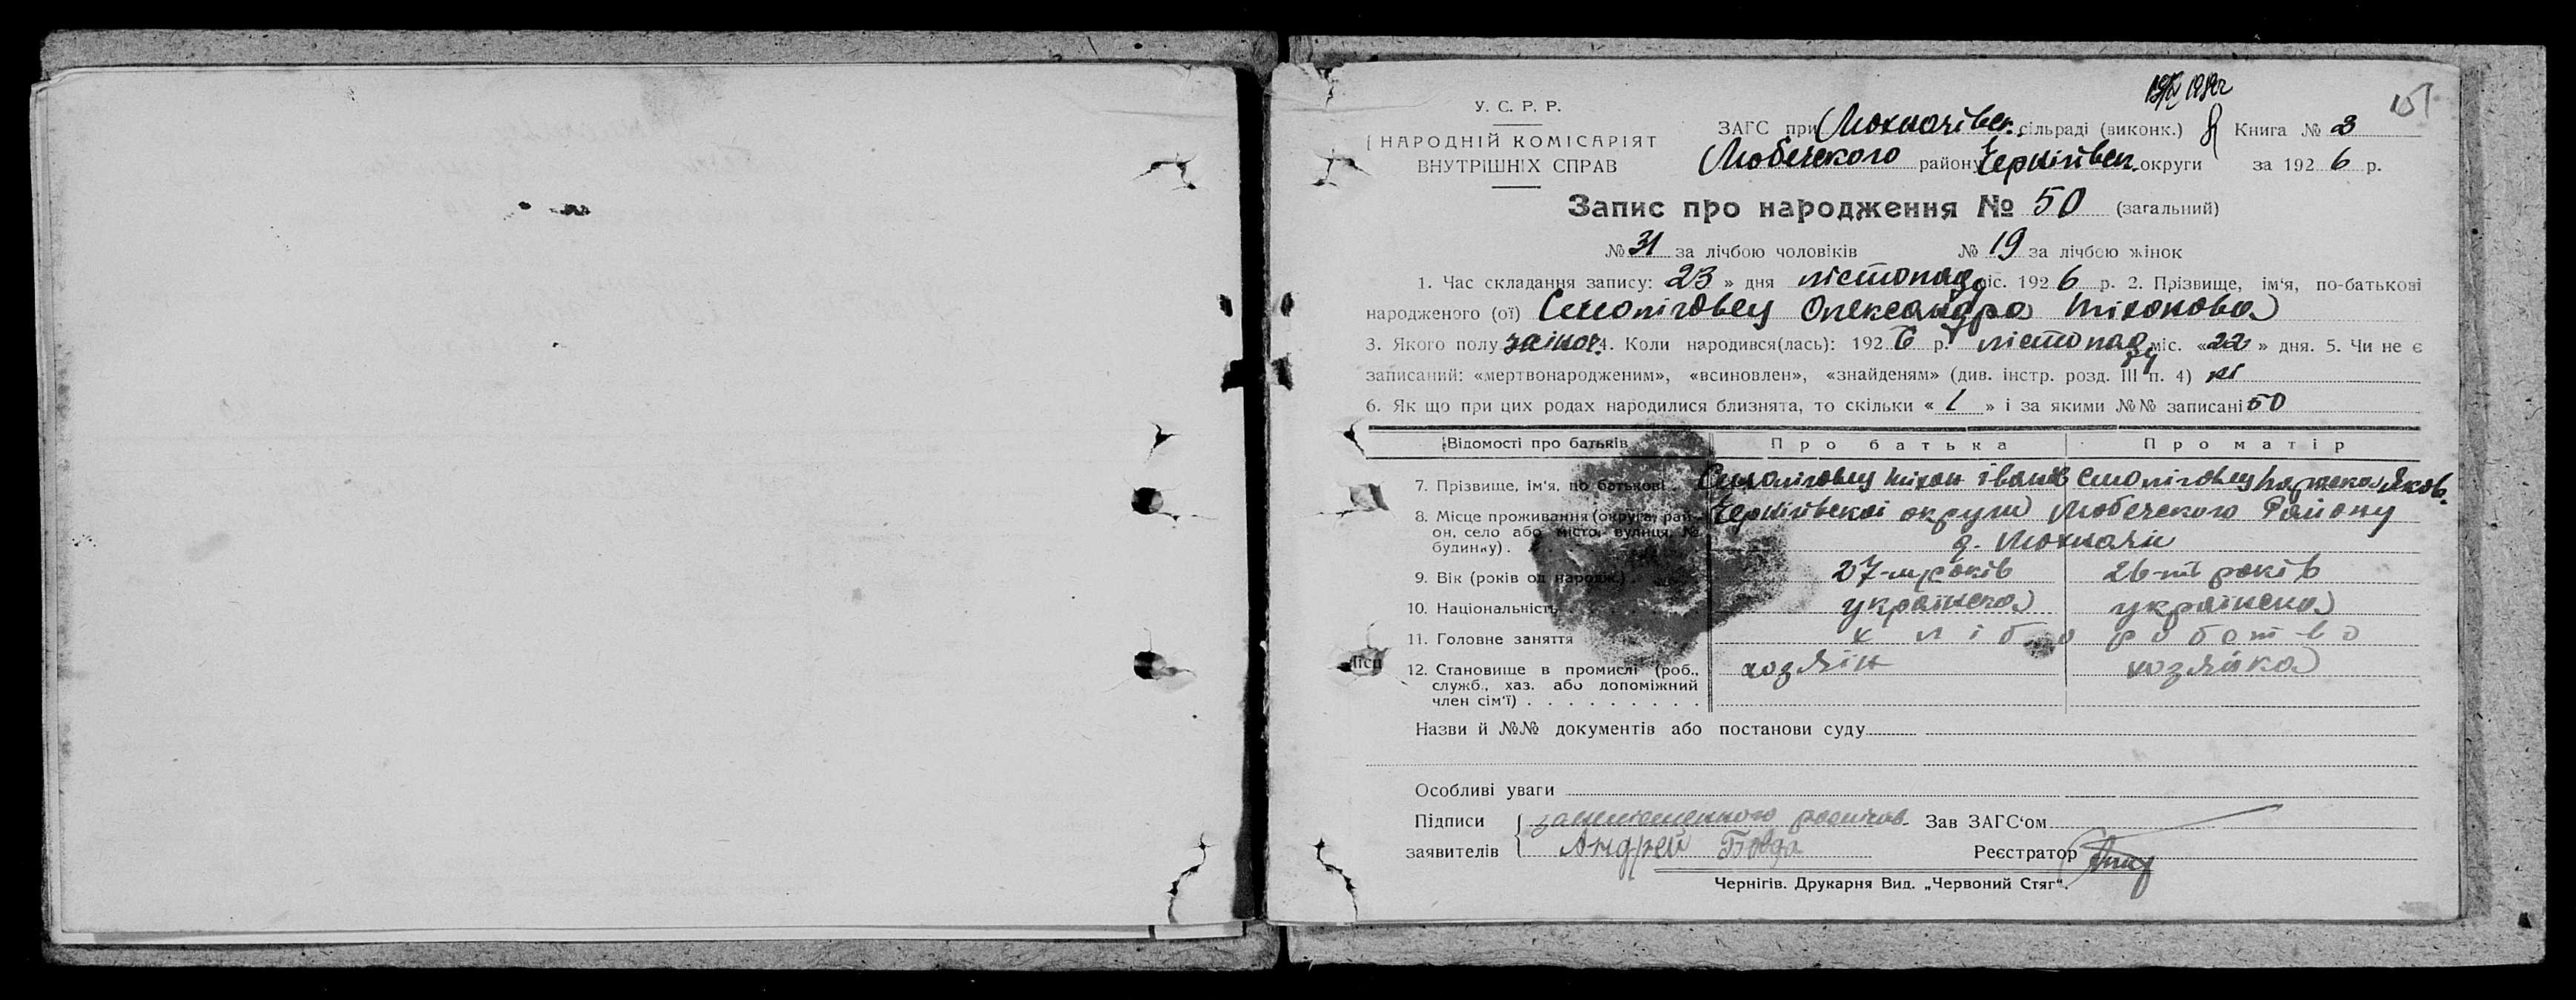 У. С. Р. Р.
НАРОДНІЙ КОМІСАРІЯТ
ВНУТРІШНІХ СПРАВ
ЗАГС при Мохначівск. сільраді (виконк.) Книга № 3
Любечского району Чернігівск. округи за 1926 р.
Запис про народження № 50 (загальний)
№ 31 за лічбою чоловіків № 19 за лічбою жінок
1. Час складання запису: 23 » дня лістопаду міс. 1926 р. 2. Прізвище, ім'я, по-батькові
народженого (ої) Смоліговец Олександра Тіхонова
3. Якого полу жіноч. 4. Коли народився(лась): 1926 р. лістопаду міс. «22» дня. 5. Чи не є
записаний: «мертвонародженим», «всиновлен», «знайденям» (див. інстр. розд. III п. 4) ні
6. Як що при цих родах народилися близнята, то скільки « 1 » і за якими №№ записані 50
Відомості про батьків Про батька Про матір
7. Прізвище, ім'я, по батькові . Смоліговец Тіхон Іванів Смоліговец Яков.
8. Місце проживання (округа, рай- Чернігівскоі округи Любечского Району
он, село або місто, вулиця, № д. Мохначи
будинку) .
9. Вік (років од народж.) 27-м років 26-ть років
10. Національність українска українска
11. Головне заняття хліборобство
12. Становище в промислі (роб., хозяін хозяйка
служб., хаз. або допоміжний
член сім'ї) . . . . . . . . .
Назви й №№ документів або постанови суду
Особливі уваги
Підписи Зав ЗАГС'ом
заявителів Андрей Бовда Реєстратор
Чернігів. Друкарня Вид. „Червоний Стяг“.